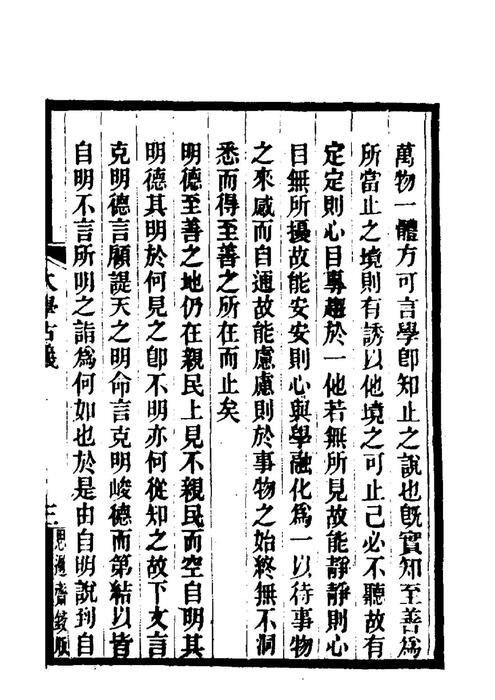 萬物一體方可言學卽知止之說也旣實知至善爲
所當止之境則有誘以他境之可止己必不聽故有
定定則心目專趨於一他若無所見故能靜靜則心
目無所擾故能安安則心與學融化爲一以待事物
之來感而自通故能慮慮則於事物之始終無不洞
悉而得至善之所在而止矣
明德至善之地仍在親民上見不親民而空自明其
明德其明於何見之卽不明亦何從知之故下文言
克明德言顧諟天之明命言克明峻德而第結以皆
自明不言所明之詣爲何如也於是由自明說到自
大學古義
思過齋鋟版